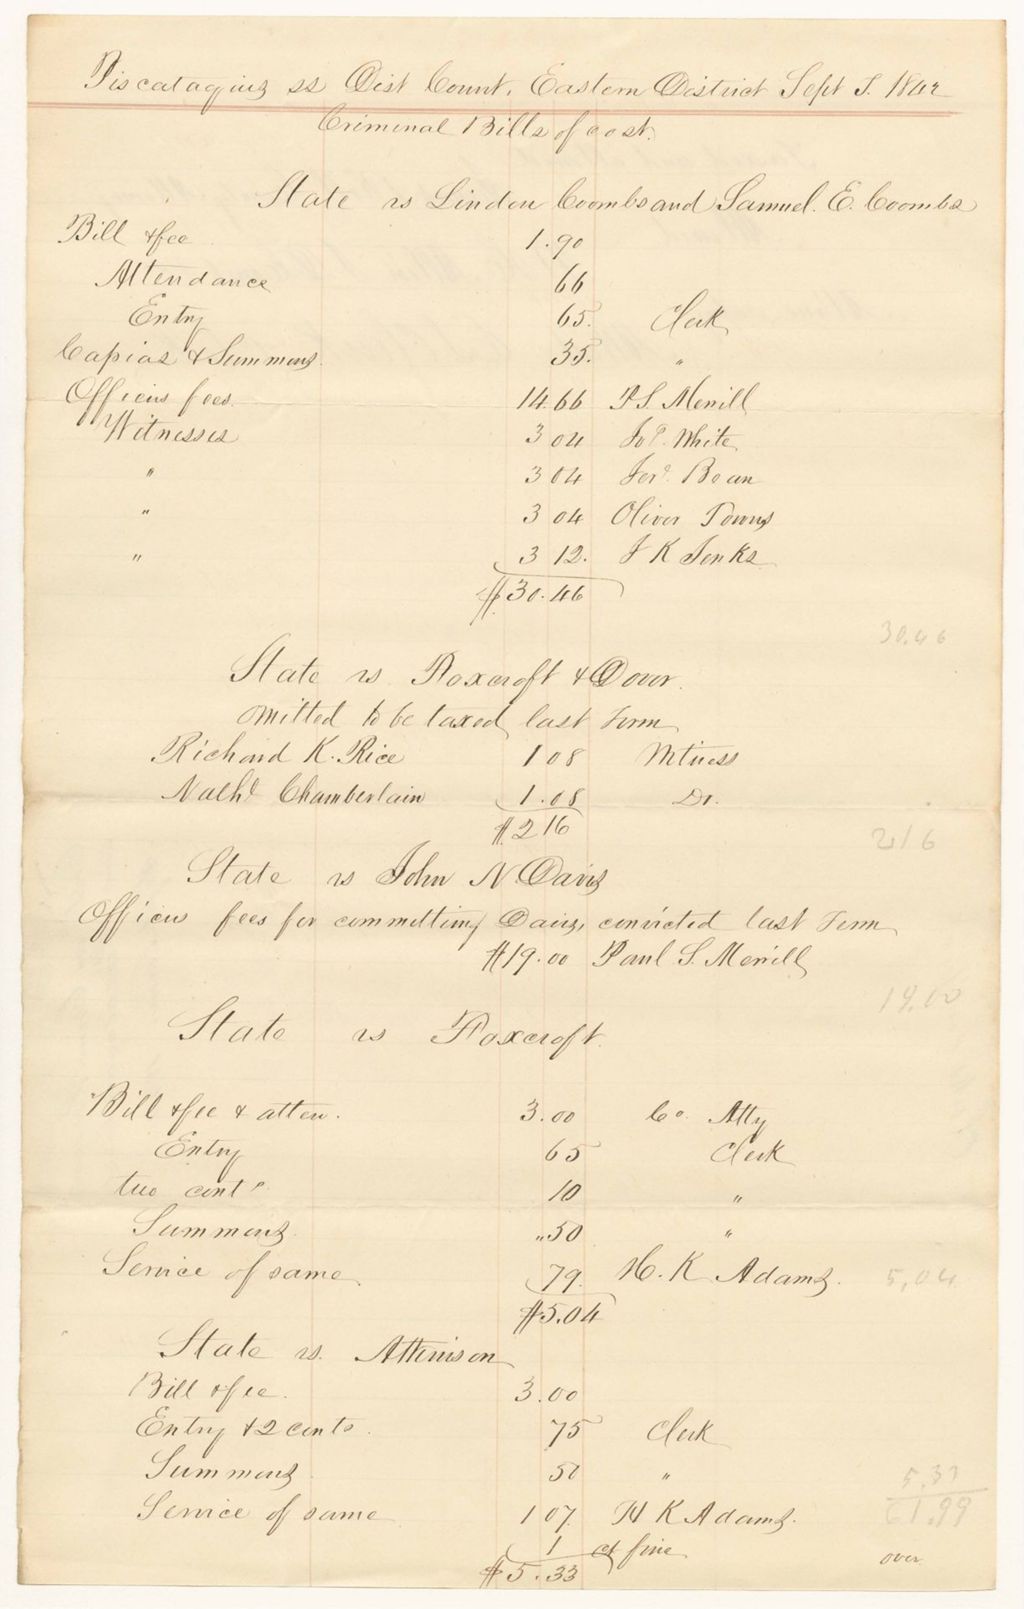 Piscataquis ss Dist Court, Eastern District Sept T. 1842
Criminal Bills of cost.
State vs Lindon Coombs and Samuel. E. Coombs
Bill & fee 1.90
Attendance 66
Entry 65. Clerk
Capias & Summons. 35. "
Officers fees. 14.66 P S. Merrill
Witnesses 3 04 White
" 3 04 Bean
" 3 04 Oliver Towns
" 3 12. J K Jenks
$30.46
30.46
State vs Foxcroft & Dover.
omitted to be taxed last Term
Richard K. Rice 1 08 Witness
Nathl Chamberlain 1.08 Do.
$2 16
2 16
State vs John N Davis
Officers fees for committing Davis, convicted last Term
$19.00 Paul S. Merrill
19.00
State vs Foxcroft.
Bill & fee & atten. 3.00 Co. Atty
Entry 65 Clerk
two conts 10 "
Summons. "50 "
Service of same. 79. H. K Adams.
5,04
$5.04
State vs. Atkinson
Bill & fee. 3.00
Entry & 2 conts. 75 Clerk
Summons 50 "
5.33
Service of same 1 07. H K Adams.
61.99
1 ct fine
over
$5.33